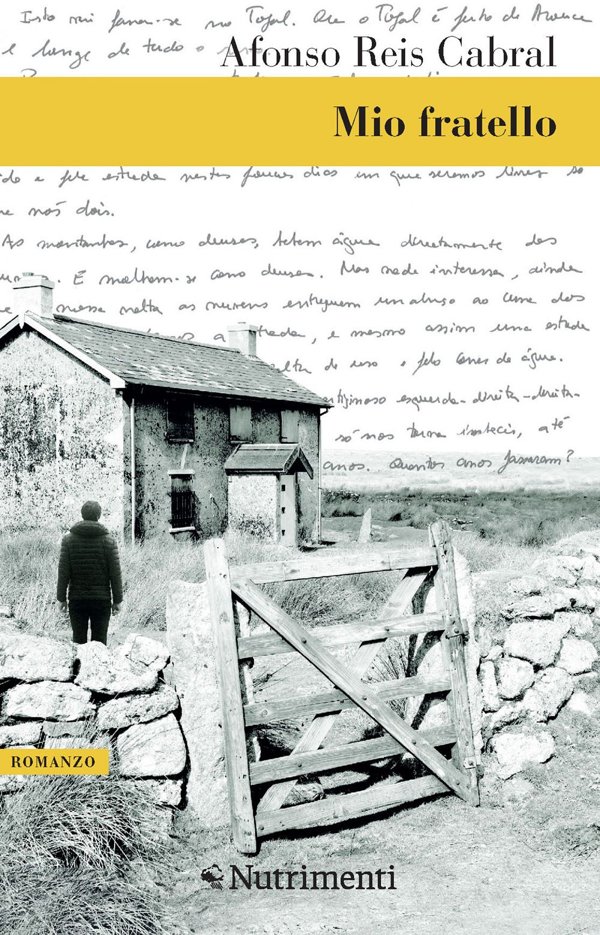 Isto vai passar-se no Tojal. Ora o Tojal é perto de Arouca
e longe de tudo o
Afonso Reis Cabral
Mio fratello
e pela estrada nestes poucos dias em que seremos livres só
nós dois.
As montanhas, como deuses, bebem água directamente das
E molham-se como deuses. Mas nada interessa, ainda
nossa volta as nuvens entreguem um abraço ao cume dos
a estrada, e mesmo assim uma estrada
falta de uso e pelo correr de água.
vertiginoso esquerda-direita-direita-
só nos torna instáveis, até
anos. Quantos anos passaram?
ROMANZO
Nutrimenti